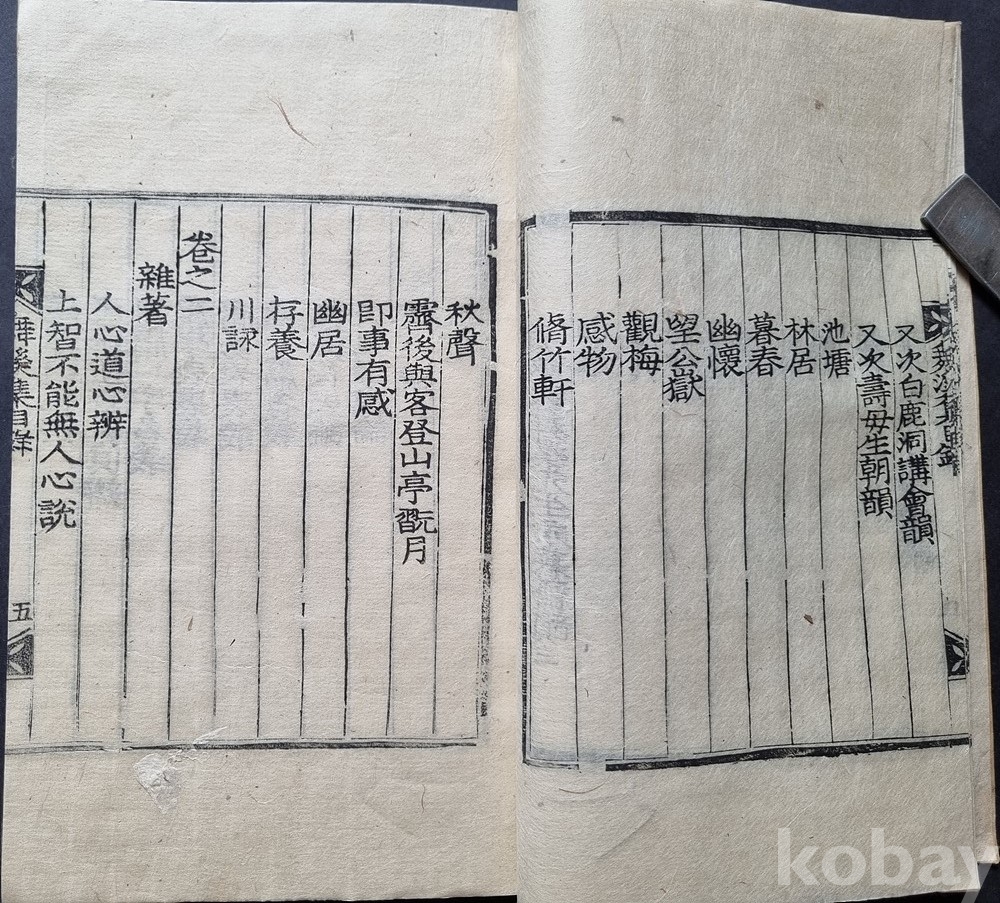 又次白鹿洞講會韻
又次壽母生朝韻
池塘
林居
暮春
幽懷
望公嶽
觀梅
感物
脩竹軒
秋聲
霽後與客登山亭翫月
卽事有感
幽居
存養
川詠
卷之二
雜著
人心道心辨
上智不能無人心說
集目錄
五
kobay